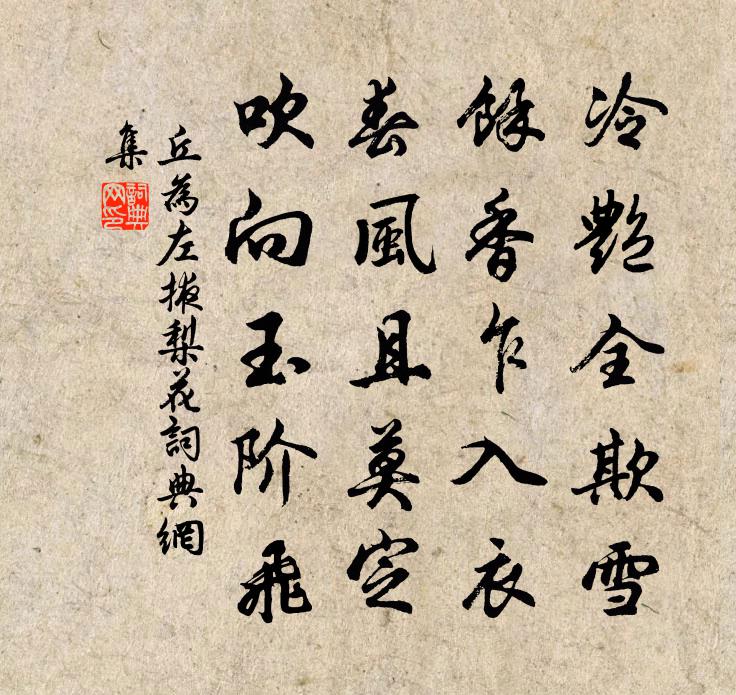 冷艷全欺雪
餘香乍入衣
春風且莫定
吹向玉阶飛
丘為左掖梨花詞典網
集
詞典
网印